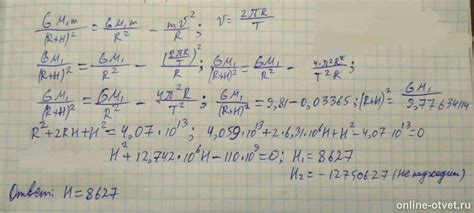 GM₁m/(R+H)² = GM₁m/R² - mv²/R; v = 2πR/T
GM₁/(R+H)² = GM₁/R² - (2πR/T)²/R; GM₁/(R+H)² = GM₁/R² - 4π²R²/T²R;
GM₁/(R+H)² = GM₁/R² - 4π²R/T²; GM₁/(R+H)² = 9,81-0,03365; (R+H)² = GM₁/9,77634114
R²+2RH+H² = 4,07·10¹³; 4,059·10¹³+2·6,31·10⁶H+H²-4,07·10¹³=0
H²+12,742·10⁶H-110·10⁹=0; H₁=8627
H₂=-12750627 (не подходит)
Ответ: H=8627
online-otvet.ru